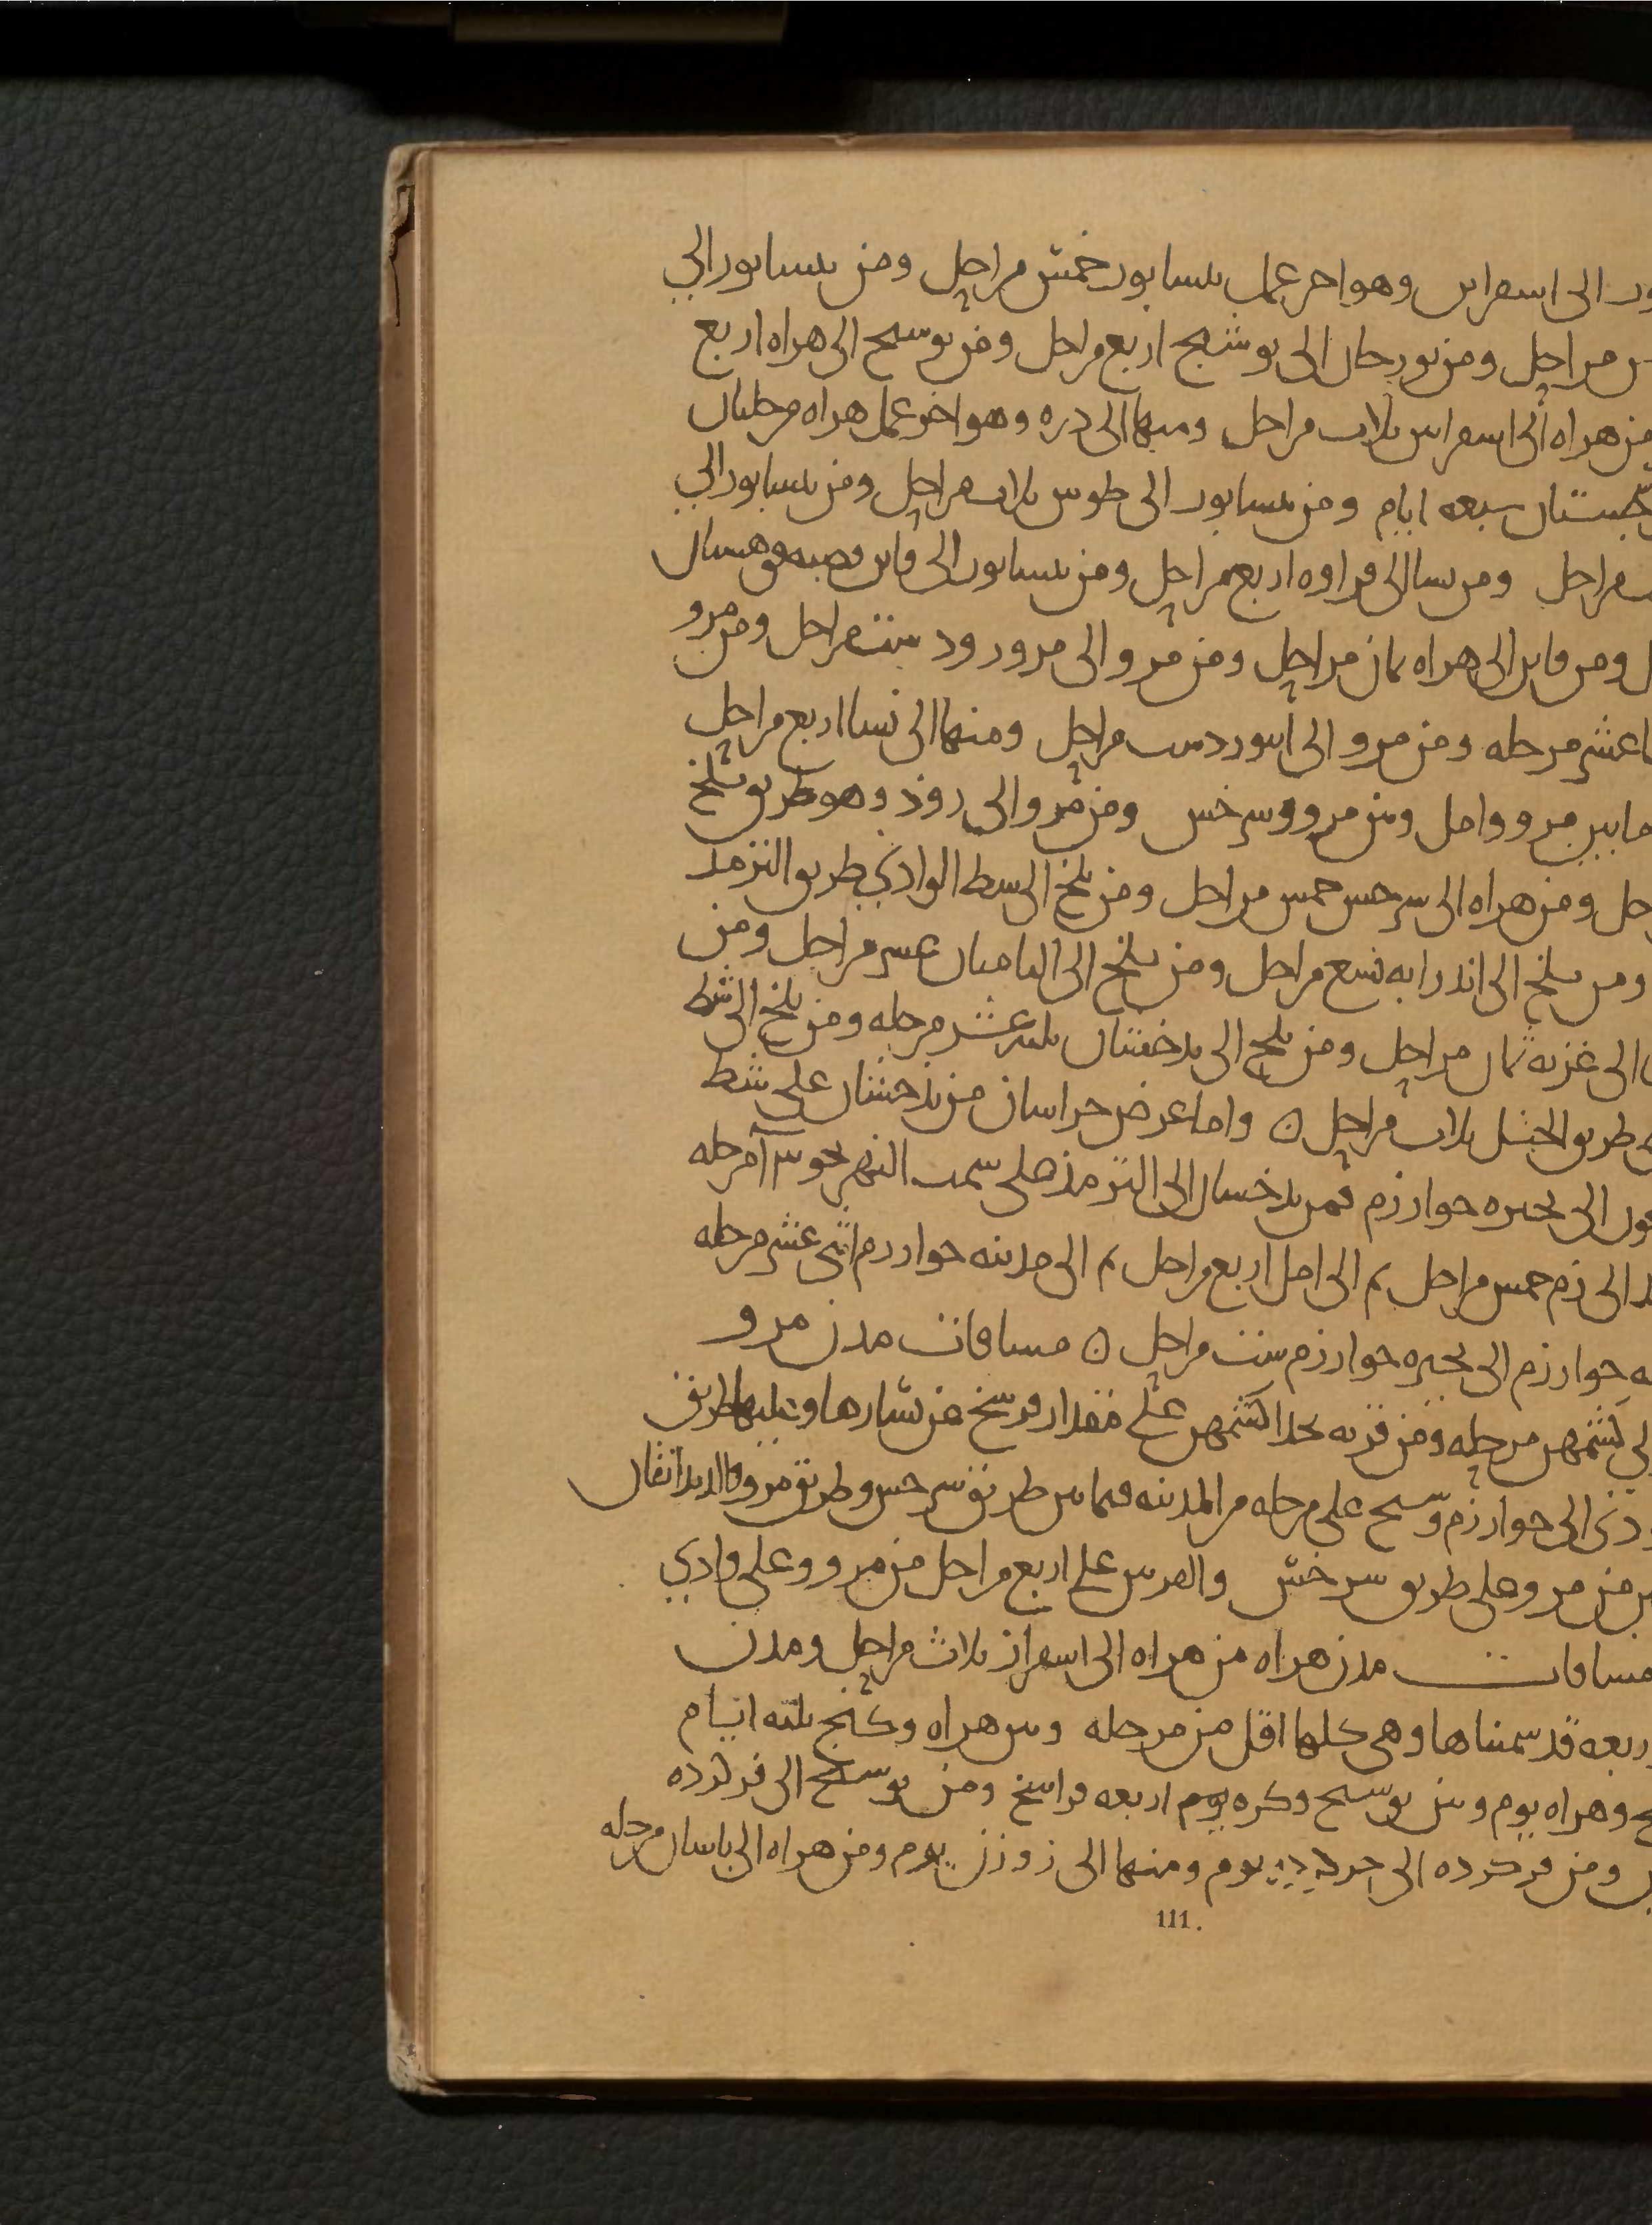 ور الى اسفراس وهو اخر عمل نيسابور خمس مراحل ومن نيسابور الى
مراحل ومن بورجان الى بوشنج اربع مراحل ومن بوسنج الى هراه اربع
من هراه الى اسفراس ثلاث مراحل ومنها الى دره وهو اخر عمل هراه مرحلتان
سبعه ايام ومن نيسابور الى طوس ثلاث مراحل ومن نيسابور الى
مراحل ومن نسا الى فراوه اربع مراحل ومن نيسابور الى قاين قصبه قوهستان
ومن قاين الى هراه ثمان مراحل ومن مرو الى مرورود ست مراحل ومن مرو
عشر مرحله ومن مرو الى ابيورد ست مراحل ومنها الى نسا اربع مراحل
ما بين مرو وامل وبين مرو وسرخس ومن مرو الى روذ وهو طريق بلخ
حل ومن هراه الى سرخس خمس مراحل ومن بلخ الى شط الوادي طريق الترمذ
ومن بلخ الى اندرابه تسع مراحل ومن بلخ الى الباميان عشر مراحل ومن
الى غزنه ثمان مراحل ومن بلخ الى بدخشان ثلثه عشر مرحله ومن بلخ الى شط
طريق الختل ثلاث مراحل ه واما عرض خراسان من بذخشان على شط
الى بحيره خوارزم فمن بدخسان الى الترمذ على سمت النهر نحو ١٣ مرحله
الى زم خمس مراحل ثم الى امل اربع مراحل ثم الى مدينه خوارزم اثنى عشر مرحله
خوارزم الى بحيره خوارزم ست مراحل ه مسافات مدن مرو
كشمهن مرحله ومن قريه بحذا كشمهن على مقدار فرسخ عن يسارها وعليها طريق
الى خوارزم وسنج على مرحله من المدينه فيما بين طريق سرخس وطريق مرو والدندانقان
من مرو على طريق سرخس والقرنين على اربع مراحل من مرو وعلى وادي
مسافات مدن هراه من هراه الى اسفزار ثلاث مراحل ومدن
اربعه قد سميناها وهى كلها اقل من مرحله وبين هراه وكنج ثلثه ايام
وهراه يوم وبين بوسنج وكره يوم اربعه فراسخ ومن بوسنج الى فركرده
ومن فركرده الى يوم ومنها الى زوزن يوم ومن هراه الى باسان مرحله
111.